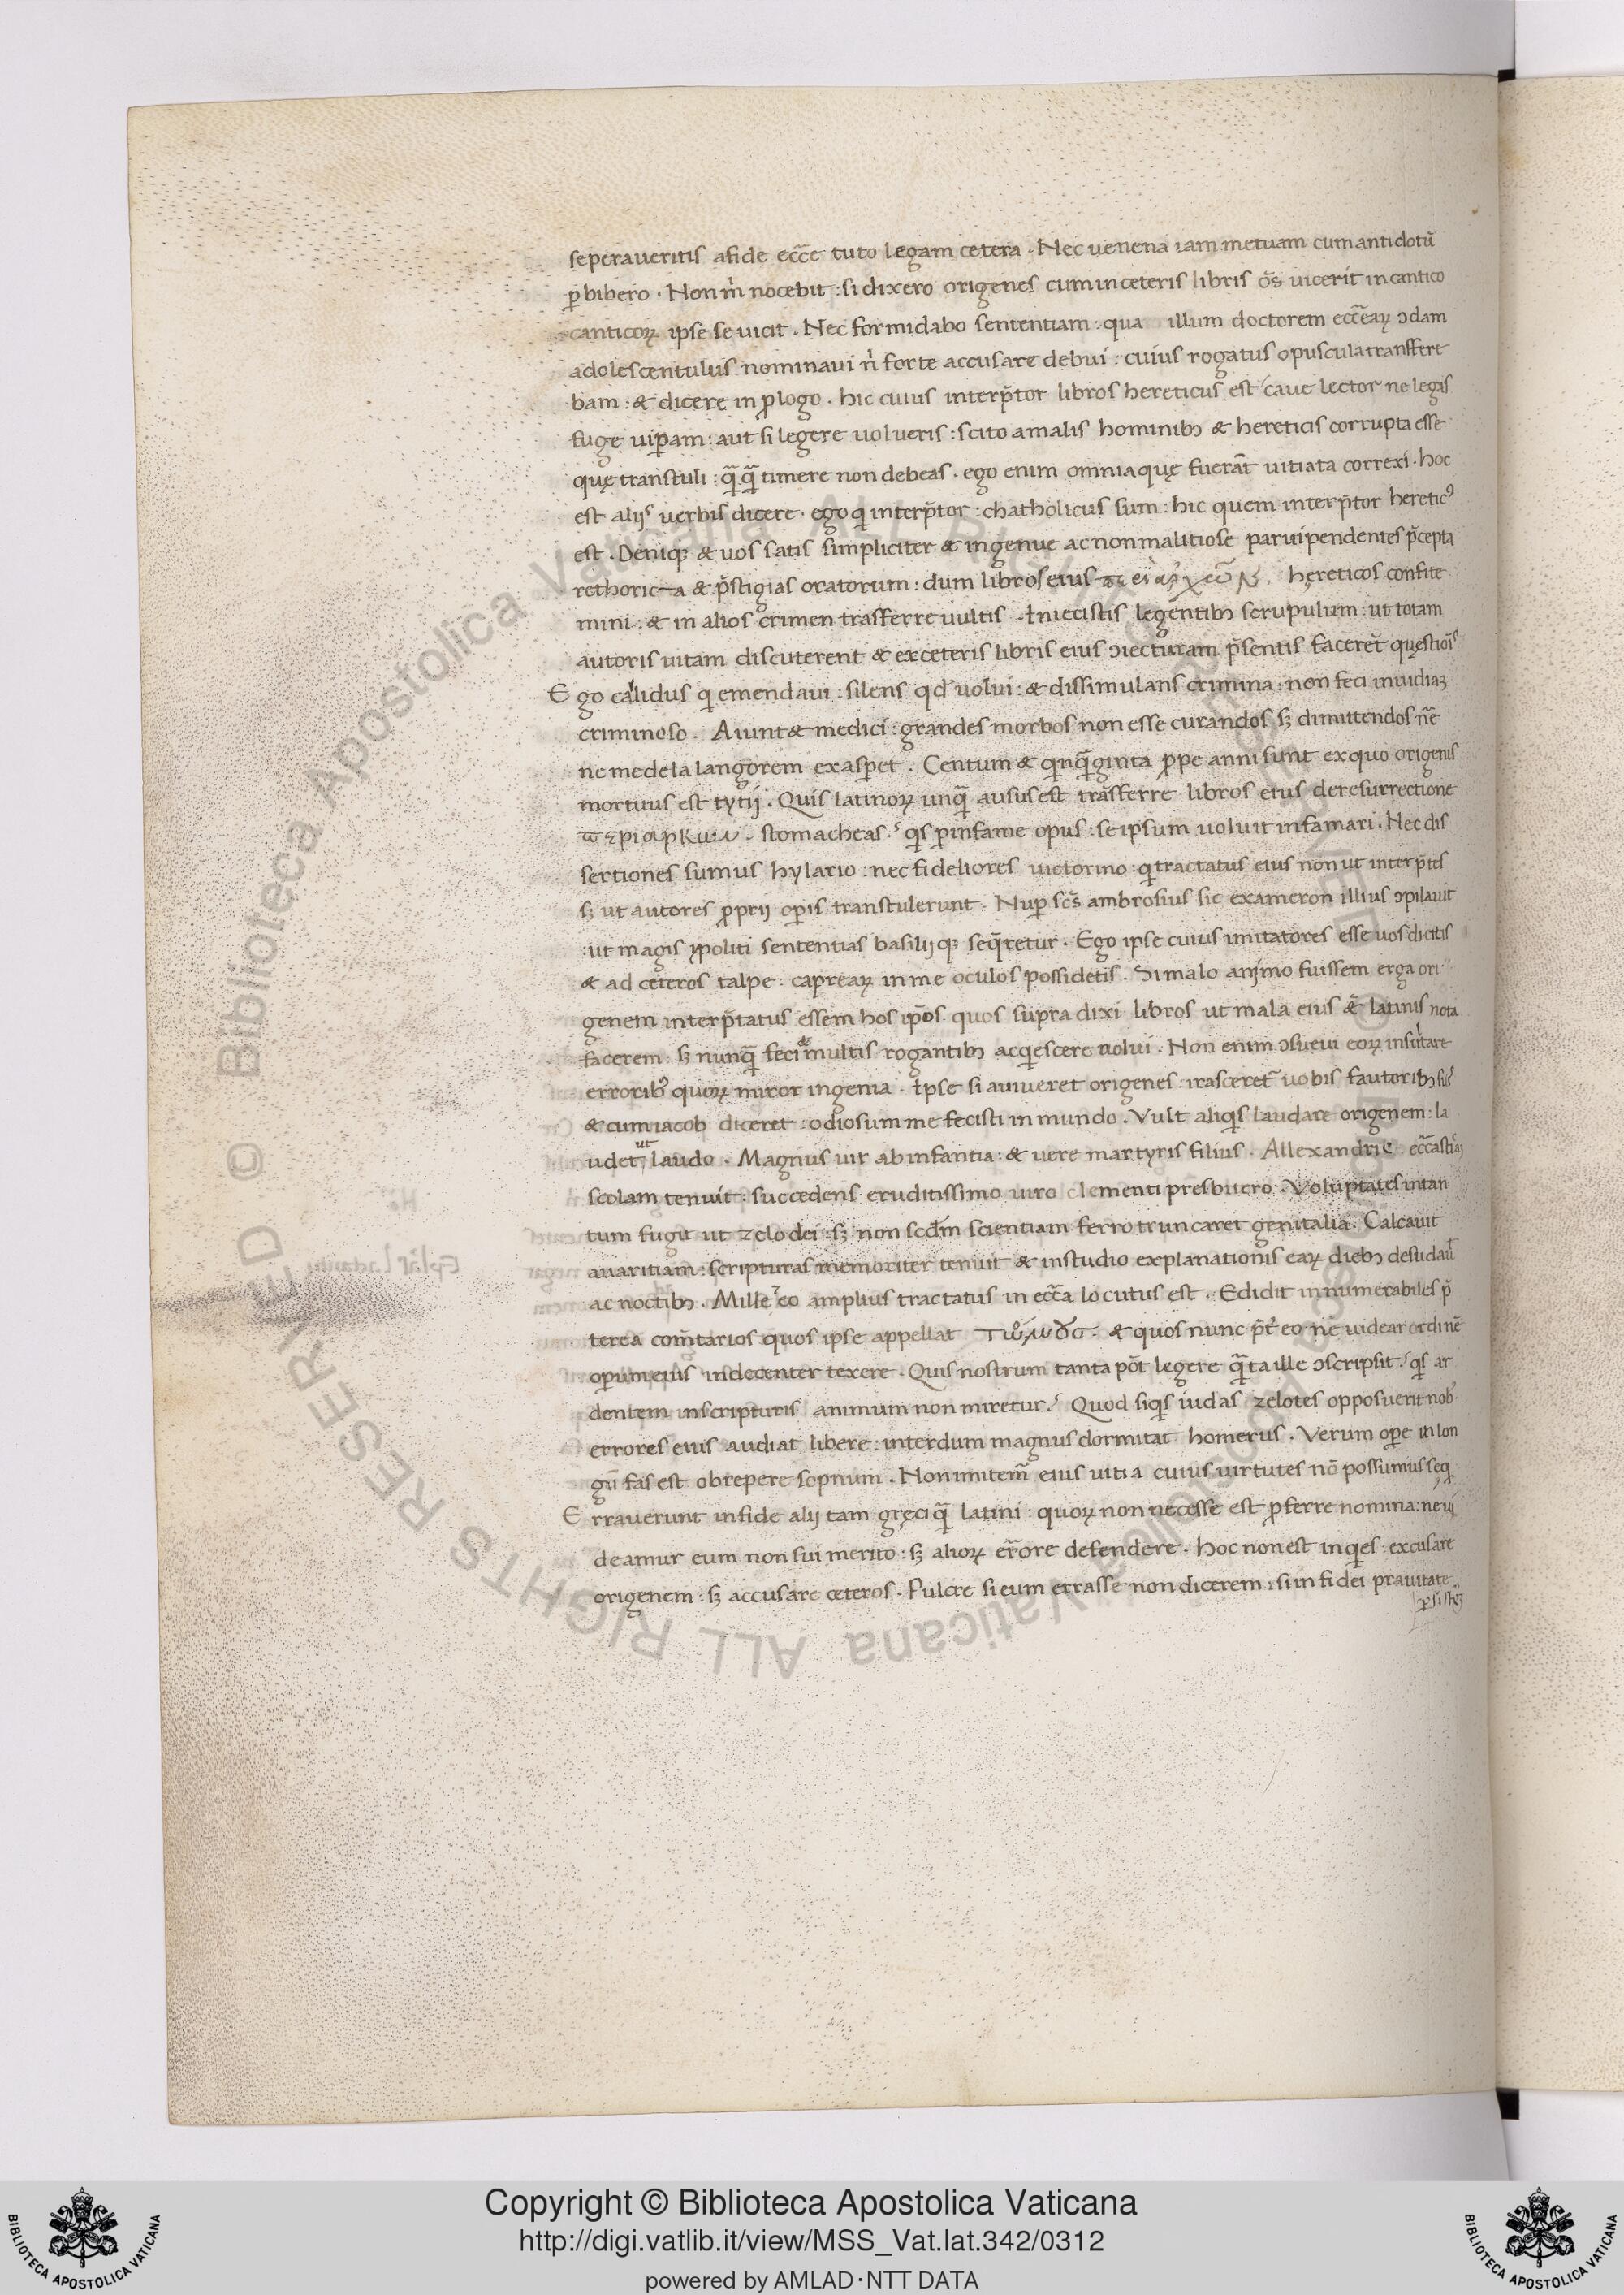 seperaueritis afide ecc̄e tuto legam cetera . Nec uenena iam metuam cum antidotū
p̄bibero . Non m̍ nocebit : si dixero origenes cum in ceteris libris oēs uicerit in cantico
canticoꝝ ipse se uicit . Nec formidabo sententiam : qua illum doctorem ecc̄eaꝝ ↄdam
adolescentulus nominaui n̍ forte accusare debui : cuius rogatus opuscula transfere
bam : & dicere in ꝓlogo . hic cuius interp̄tor libros hereticus est caue lector ne legas
fuge uiꝑam : aut si legere uolueris : scito amalis hominibꝫ & hereticis corrupta esse
quę transtuli : q̄q̄ timere non debeas . ego enim omnia quę fuerāt uitiata correxi . hoc
est alijs uerbis dicere . ego q interp̄tor : chatholicus sum : hic quem interp̄tor heretic⁹
est . Deniqꝫ & uos satis simpliciter & ingenue ac non malitiose paruipendentes p̄cepta
rethorica & p̄stigias oratorum : dum libros eius hęreticos confite
mini : & in alios crimen trāsferre uultis . Iniecistis legentibꝫ scrupulum : ut totam
autoris uitam discuterent & ex ceteris libris eius ↄiecturam p̄sentis facerēt quęstiōis
Ego callidus q emendaui : silens qd̄ uolui : & dissimulans crimina : non feci inuidiaꝫ
criminoso . Aiunt & medici : grandes morbos non esse curandos sꝫ dimittendos n̄e
ne medela langorem exasꝑet . Centum & qnq̄ginta ꝓpe anni sunt ex quo origenis
mortuus est tytij . Quis latinoꝝ unq̄ ausus est trāsferre libros eius de resurrectione
περιαρκων . stomacheas . qs ꝑ infame opus : seipsum uoluit infamari . Nec dis
sertiones sumus hylario : nec fideliores uictorino : q tractatus eius non ut interp̄tes
sꝫ ut autores ꝓprij oꝑis transtulerunt . Nuꝑ scs̄ ambrosius sic exameron illius ↄpilauit
: ut magis ypoliti sententias basilij qꝫ seq̄retur . Ego ipse cuius imitatores esse uos dicitis
& ad ceteros talpe : capreaꝝ in me oculos possidetis . Si malo animo fuissem erga ori
genem interp̄tatus essem hos ip̄os quos supra dixi libros ut mala eius & latinis nota
facerem : sꝫ nunq̄ feci & multis rogantibꝫ acqescere nolui . Non enim ↄsueui eoꝝ insultare
erroribꝫ quoꝝ miror ingenia . Ipse si auiueret origenes : irasceret̄ uobis fautoribꝫ suis
& cum iacob diceret : odiosum me fecisti in mundo . Vult aliqs laudare origenem : la
udet ut laudo . Magnus uir ab infantia : & uere martyris filius . Allexandrie
scolam tenuit : succedens eruditissimo uiro clementi presbitero . Voluptates intan
tum fugit ut zelo dei : sꝫ non scd̄m scientiam ferro truncaret genitalia . Calcauit
auaritiam : scripturas memoriter tenuit & in studio explanationis eaꝝ diebꝫ desudauit
ac noctibꝫ . Mille & eo amplius tractatus in ecc̄a locutus est . Edidit innumerabiles p̄
terea com̄tarios quos ipse appellat τωμους . & quos nunc p̄t̍eo ne uidear ordinē
oꝑum eius indecenter texere . Quis nostrum tanta pōt legere q̄ta ille ↄscripsit . qs ar
dentem inscripturis animum non miretur . Quod siqs iudas zelotes opposuerit nob̍
errores eius audiat libere : interdum magnus dormitat homerus . Verum oꝑe in lon
gū fas est obrepere sopnum . Non imitem̄ eius uitia cuius uirtutes nō possumus seq
Errauerunt infide alij tam gręci q̄ latini : quoꝝ non necesse est ꝓferre nomina : ne ui
deamur eum non sui merito : sꝫ alioꝝ er̄ore defendere . hoc non est inqes : excusare
origenem : sꝫ accusare ceteros . Pulcre si eum errasse non dicerem : si in fidei prauitate
Copyright © Biblioteca Apostolica Vaticana
http://digi.vatlib.it/view/MSS_Vat.lat.342/0312
powered by AMLAD·NTT DATA
BIBLIOTECA APOSTOLICA VATICANA
BIBLIOTECA APOSTOLICA VATICANA